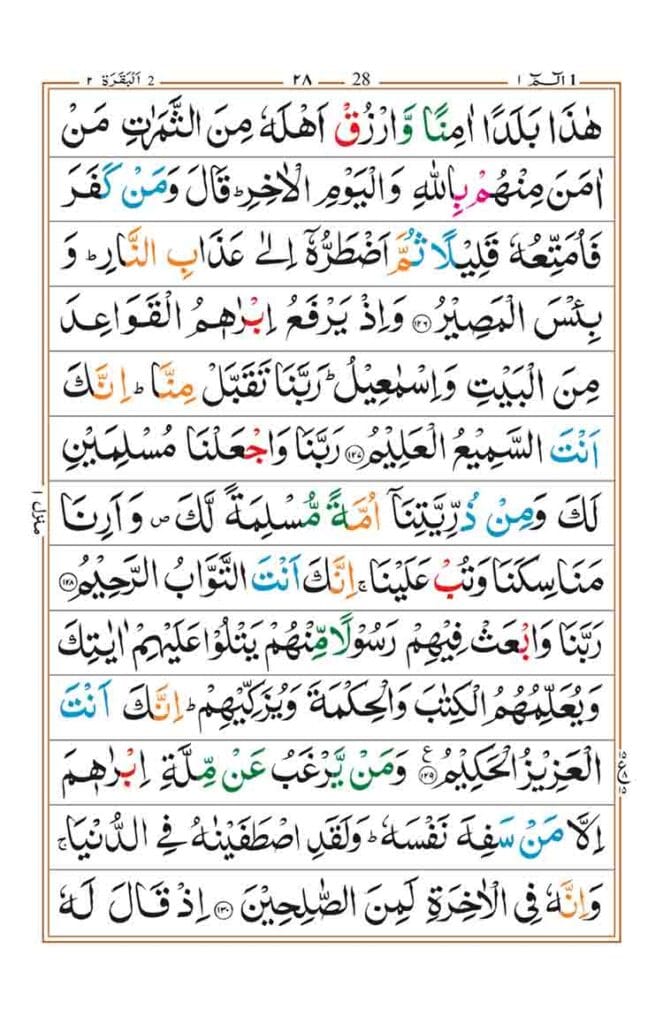 الٓمّٓ ١ 1 28 ٢٨ 2 اَلْبَقَرَة ٢
هٰذَا بَلَدًا اٰمِنًا وَّارْزُقْ اَهْلَهٗ مِنَ الثَّمَرٰتِ مَنْ
اٰمَنَ مِنْهُمْ بِاللّٰهِ وَالْيَوْمِ الْاٰخِرِؕ قَالَ وَمَنْ كَفَرَ
فَاُمَتِّعُهٗ قَلِيْلًا ثُمَّ اَضْطَرُّهٗۤ اِلٰى عَذَابِ النَّارِؕ وَ
بِئْسَ الْمَصِيْرُ ۝١٢٦ وَاِذْ يَرْفَعُ اِبْرٰهٖمُ الْقَوَاعِدَ
مِنَ الْبَيْتِ وَاِسْمٰعِيْلُؕ رَبَّنَا تَقَبَّلْ مِنَّاؕ اِنَّكَ
اَنْتَ السَّمِيْعُ الْعَلِيْمُ ۝١٢٧ رَبَّنَا وَاجْعَلْنَا مُسْلِمَيْنِ
لَكَ وَمِنْ ذُرِّيَّتِنَاۤ اُمَّةً مُّسْلِمَةً لَّكَ ص وَاَرِنَا
مَنَاسِكَنَا وَتُبْ عَلَيْنَاۚ اِنَّكَ اَنْتَ التَّوَّابُ الرَّحِيْمُ ۝١٢٨
رَبَّنَا وَابْعَثْ فِيْهِمْ رَسُوْلًا مِّنْهُمْ يَتْلُوْا عَلَيْهِمْ اٰيٰتِكَ
وَيُعَلِّمُهُمُ الْكِتٰبَ وَالْحِكْمَةَ وَيُزَكِّيْهِمْؕ اِنَّكَ اَنْتَ
الْعَزِيْزُ الْحَكِيْمُ ۝١٢٩ع وَمَنْ يَّرْغَبُ عَنْ مِّلَّةِ اِبْرٰهٖمَ
اِلَّا مَنْ سَفِهَ نَفْسَهٗؕ وَلَقَدِ اصْطَفَيْنٰهُ فِى الدُّنْيَاۚ
وَاِنَّهٗ فِى الْاٰخِرَةِ لَمِنَ الصّٰلِحِيْنَ ۝١٣٠ اِذْ قَالَ لَهٗ
منزل ١